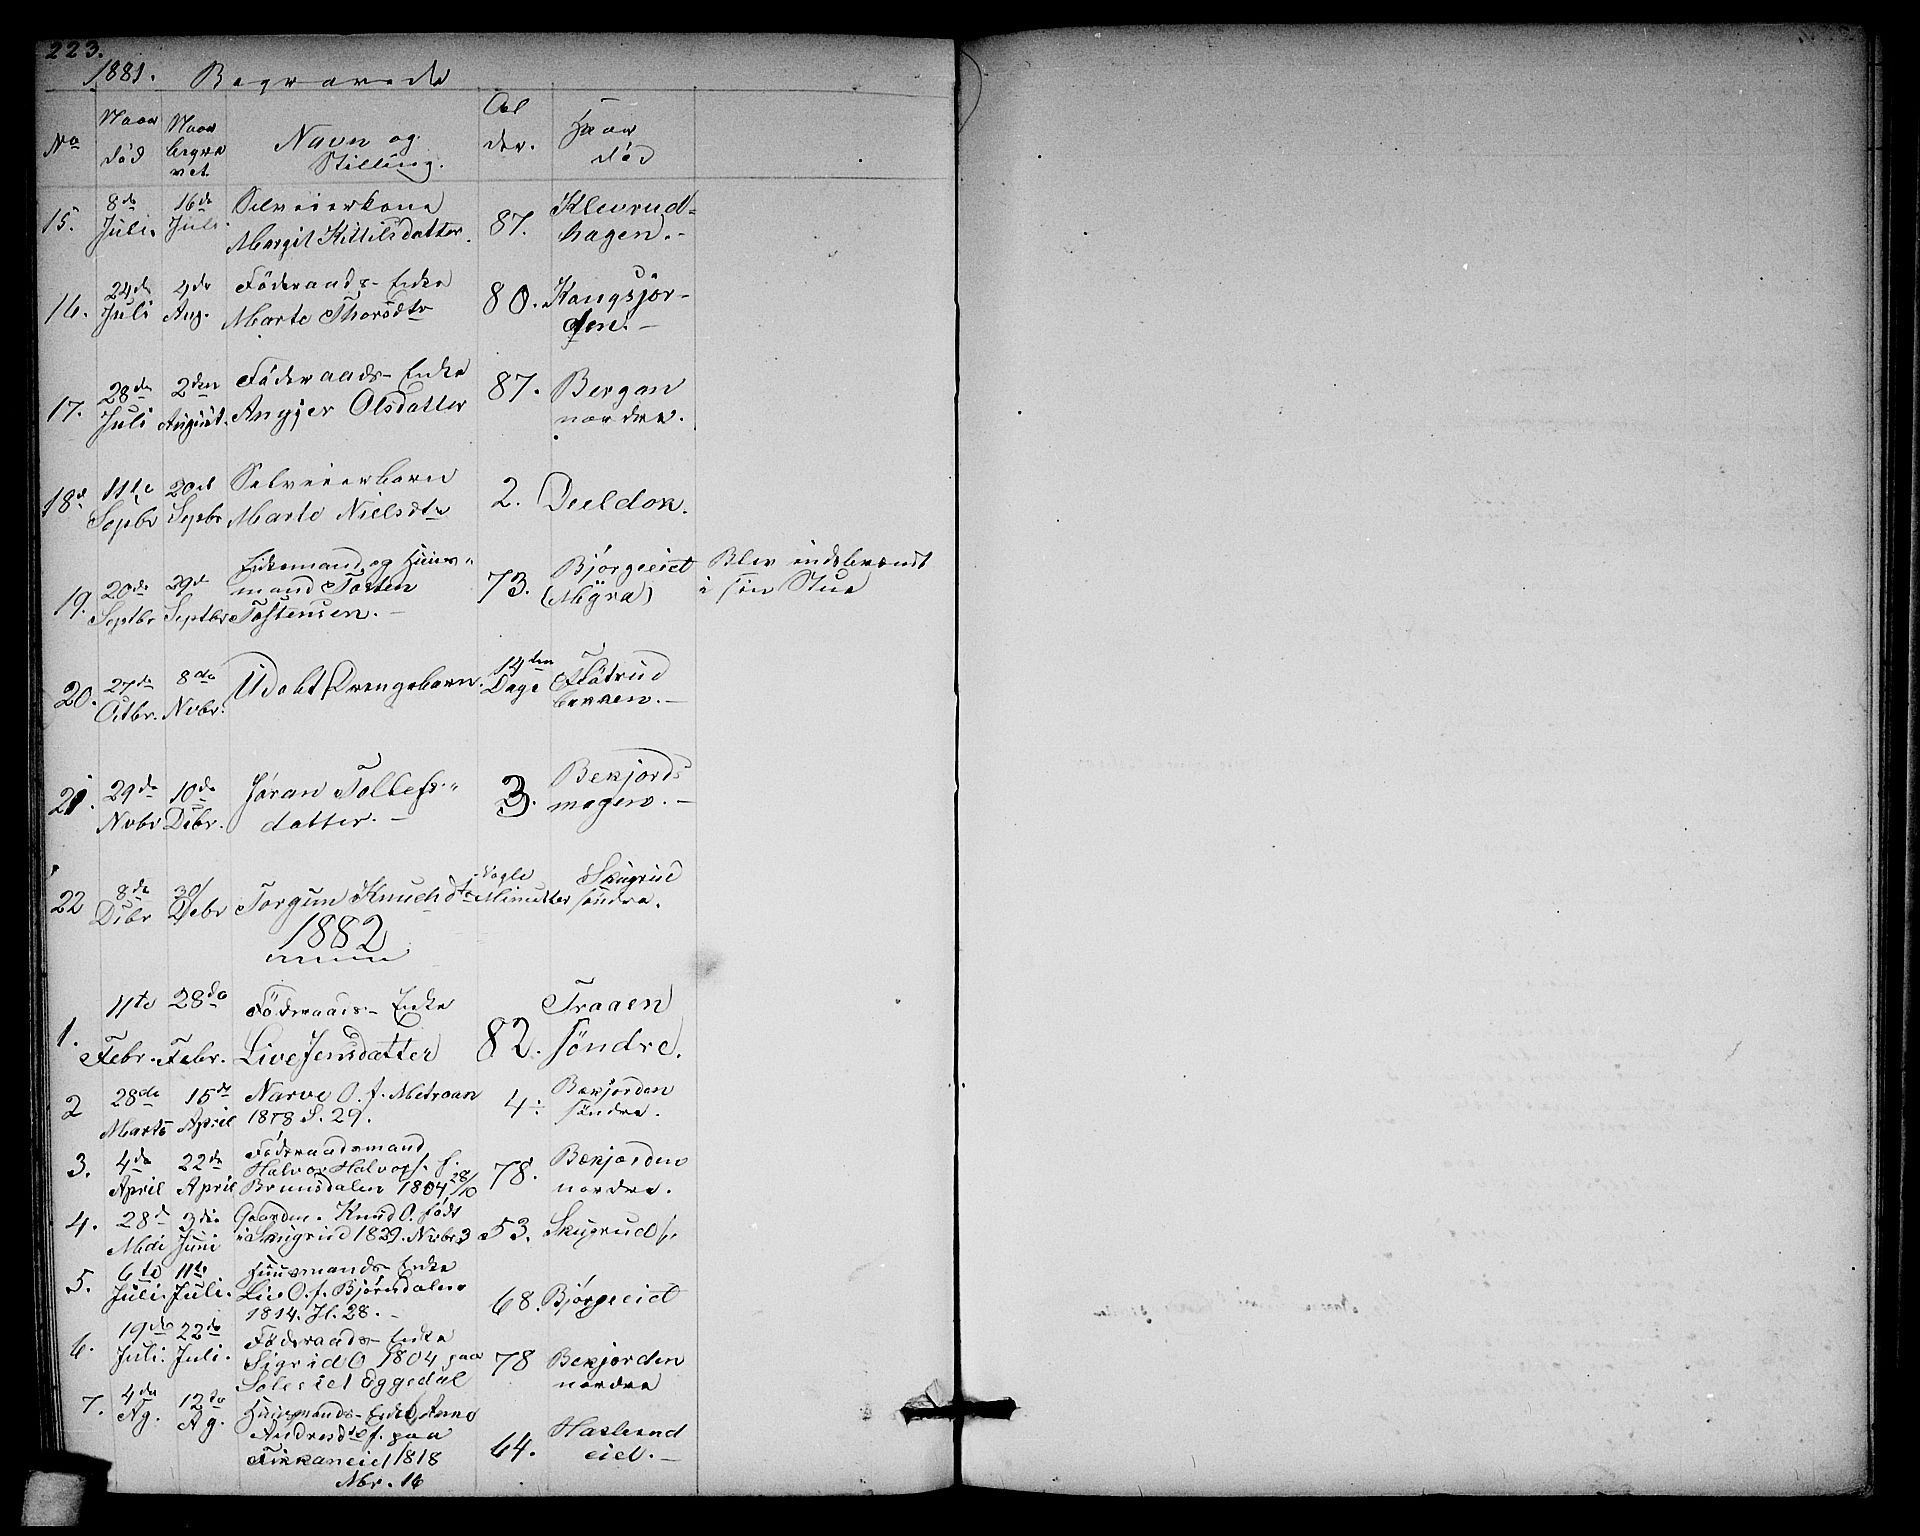 223.
1881. Begravede
No
Naar død
Naar begravet.
Navn og Stilling.
Alder.
Hvor død
15. 8de Juli. 16de Juli. Selveierkone Margit Kittilsdatter. 87. Klevrudhagen. -
16. 24de Juli 4de Aug. Föderaads-Enke Marte Thorsdtr 80. Kongsjorden. -
17. 28de Juli 2den August. Föderaads-Enke Angjer Olsdatter 87. Bergan nordre.
18. 11te Sepbr 20de Sepbr Selveierbarn Marte Nielsdtr 2. Deeldok.
19. 20de Septbr 29de Septbr Enkemand og Huusmand Tosten Tostensen. - 73. Bjørgeeiet (Mÿra) Blev indebrændt i sin Stue
20. 27de Octbr. 8de Novbr. Udøbt Drengebarn. 14ten Dage Flåtrud bakken. -
21. 29de Novbr 10de Decbr. Jøran Tollefsdatter. - 3. Bekjordsmogen. -
22 8de Decbr 30/ Decbr Torgun Knudsdtr Nogle Minutter Skugrud søndre.
1882
1. 11te Febr. 28de Febr. Föderaads-Enke Live Jensdatter 82. Traaen söndre.
2 28de Marts 15de April Narve O. f. Metraan 1878 S. 29. 4. Bekjorden söndre.
3. 4de April 22de April Föderaadsmand Halvor Halvors. f. Brunsdalen 1804 28/10 78. Bekjorden nordre.
4. 28de Mai 3die Juni Gaardm. Knud O. født i Skugrud 1829. Novbr 3 53. Skugrud s.
5. 6te Juli. 11te Juli. Huusmands-Enke Liv O. f. Bjørndalen 1814. Jl. 28. - 68. Bjørgeeiet
6. 19de Juli. 22de Juli. Föderaads-Enke Sigrid O 1804 paa Soleseiet Eggedal 78 Bekjorden nordre
7. 4de Ag. 12te Ag. Huusmands-Enke Anne Andresdtr f. paa Tikkaneiet 1818 Nbr. 16 64. Haslerudeiet. -